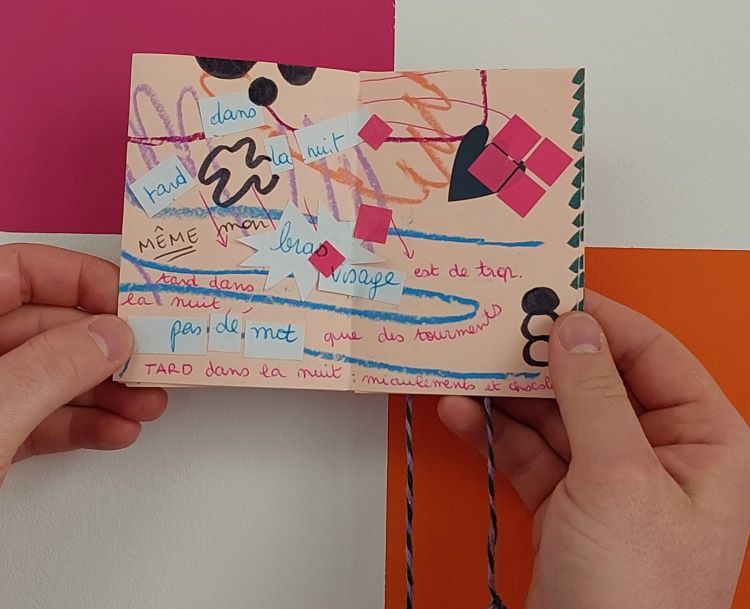 tard dans la nuit
MÊME mon bras visage est de trop.
tard dans
la nuit
pas de mot que des tourments
TARD dans la nuit : miaulements et chocol